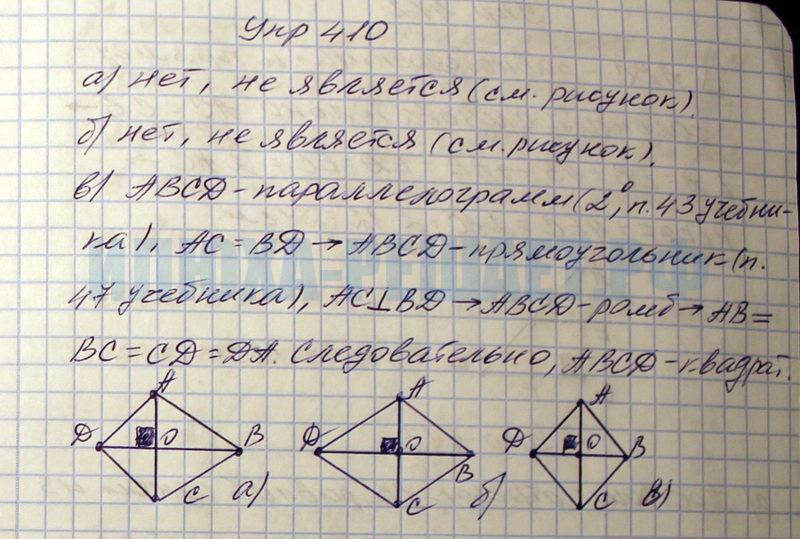 Упр 410
а) нет, не является (см. рисунок).
б) нет, не является (см. рисунок).
в) ABCD - параллелограмм (2°, п. 43 учебни-
ка), AC = BD → ABCD - прямоугольник (п.
47 учебника), AC⊥BD → ABCD - ромб → AB =
BC = CD = DA. Следовательно, ABCD - квадрат.
A
D O B
C а)
A
D O B
C б)
A
D O B
C в)